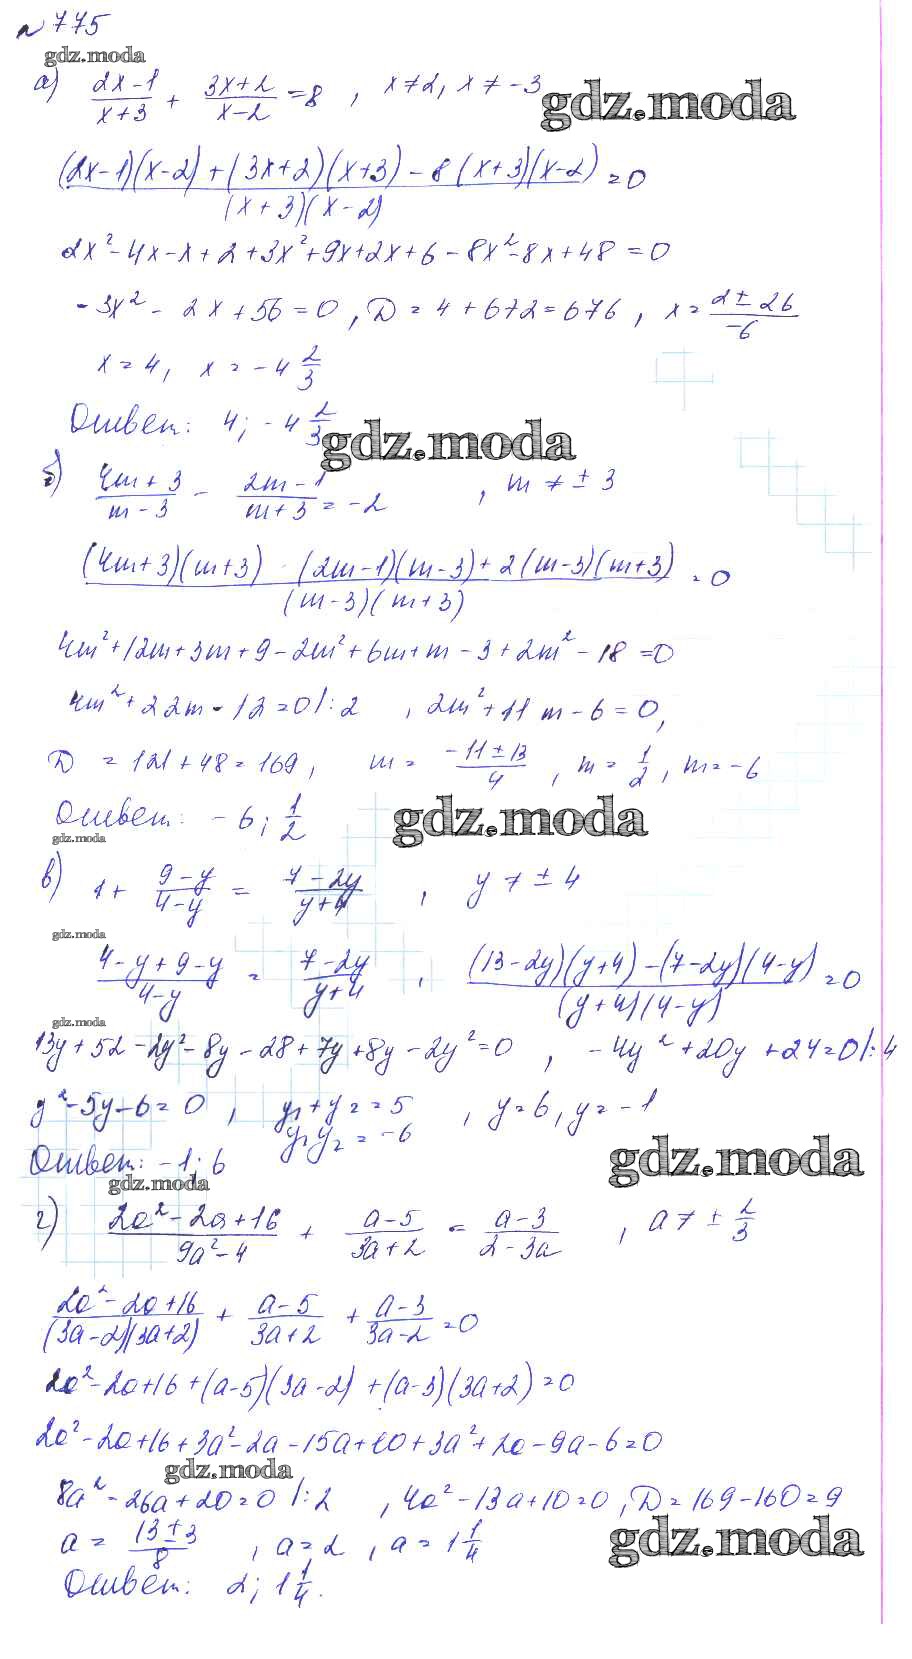 № 775
gdz.moda
а) (2x-1)/(x+3) + (3x+2)/(x-2) = 8 , x≠2, x≠-3
gdz.moda
((2x-1)(x-2) + (3x+2)(x+3) - 8(x+3)(x-2))/((x+3)(x-2)) = 0
2x²-4x-x+2+3x²+9x+2x+6-8x²-8x+48=0
-3x²-2x+56=0, D=4+672=676, x=(2±26)/-6
x=4, x=-4 2/3
Ответ: 4; -4 2/3
gdz.moda
б) (4m+3)/(m-3) - (2m-1)/(m+3) = -2 , m≠±3
((4m+3)(m+3) - (2m-1)(m-3)+2(m-3)(m+3))/((m-3)(m+3)) = 0
4m²+12m+3m+9-2m²+6m+m-3+2m²-18=0
4m²+22m-12=0|:2 , 2m²+11m-6=0,
D=121+48=169, m=(-11±13)/4 , m=1/2, m=-6
Ответ: -6; 1/2
gdz.moda
gdz.moda
в) 1+ (9-y)/(4-y) = (7-2y)/(y+4) , y≠±4
gdz.moda
(4-y+9-y)/(4-y) = (7-2y)/(y+4) , ((13-2y)(y+4)-(7-2y)(4-y))/((y+4)(4-y)) = 0
gdz.moda
13y+52-2y²-8y-28+7y+8y-2y²=0 , -4y²+20y+24=0|:4
y²-5y-6=0 , y₁+y₂=5 , y=6, y=-1
y₁y₂=-6
Ответ: -1; 6
gdz.moda
gdz.moda
г) (2a²-2a+16)/(9a²-4) + (a-5)/(3a+2) = (a-3)/(2-3a) , a≠±2/3
(2a²-2a+16)/((3a-2)(3a+2)) + (a-5)/(3a+2) + (a-3)/(3a-2) = 0
2a²-2a+16+(a-5)(3a-2)+(a-3)(3a+2)=0
2a²-2a+16+3a²-2a-15a+10+3a²+2a-9a-6=0
gdz.moda
8a²-26a+20=0|:2 , 4a²-13a+10=0, D=169-160=9
a=(13±3)/8 , a=2, a=1 1/4
gdz.moda
Ответ: 2; 1 1/4.